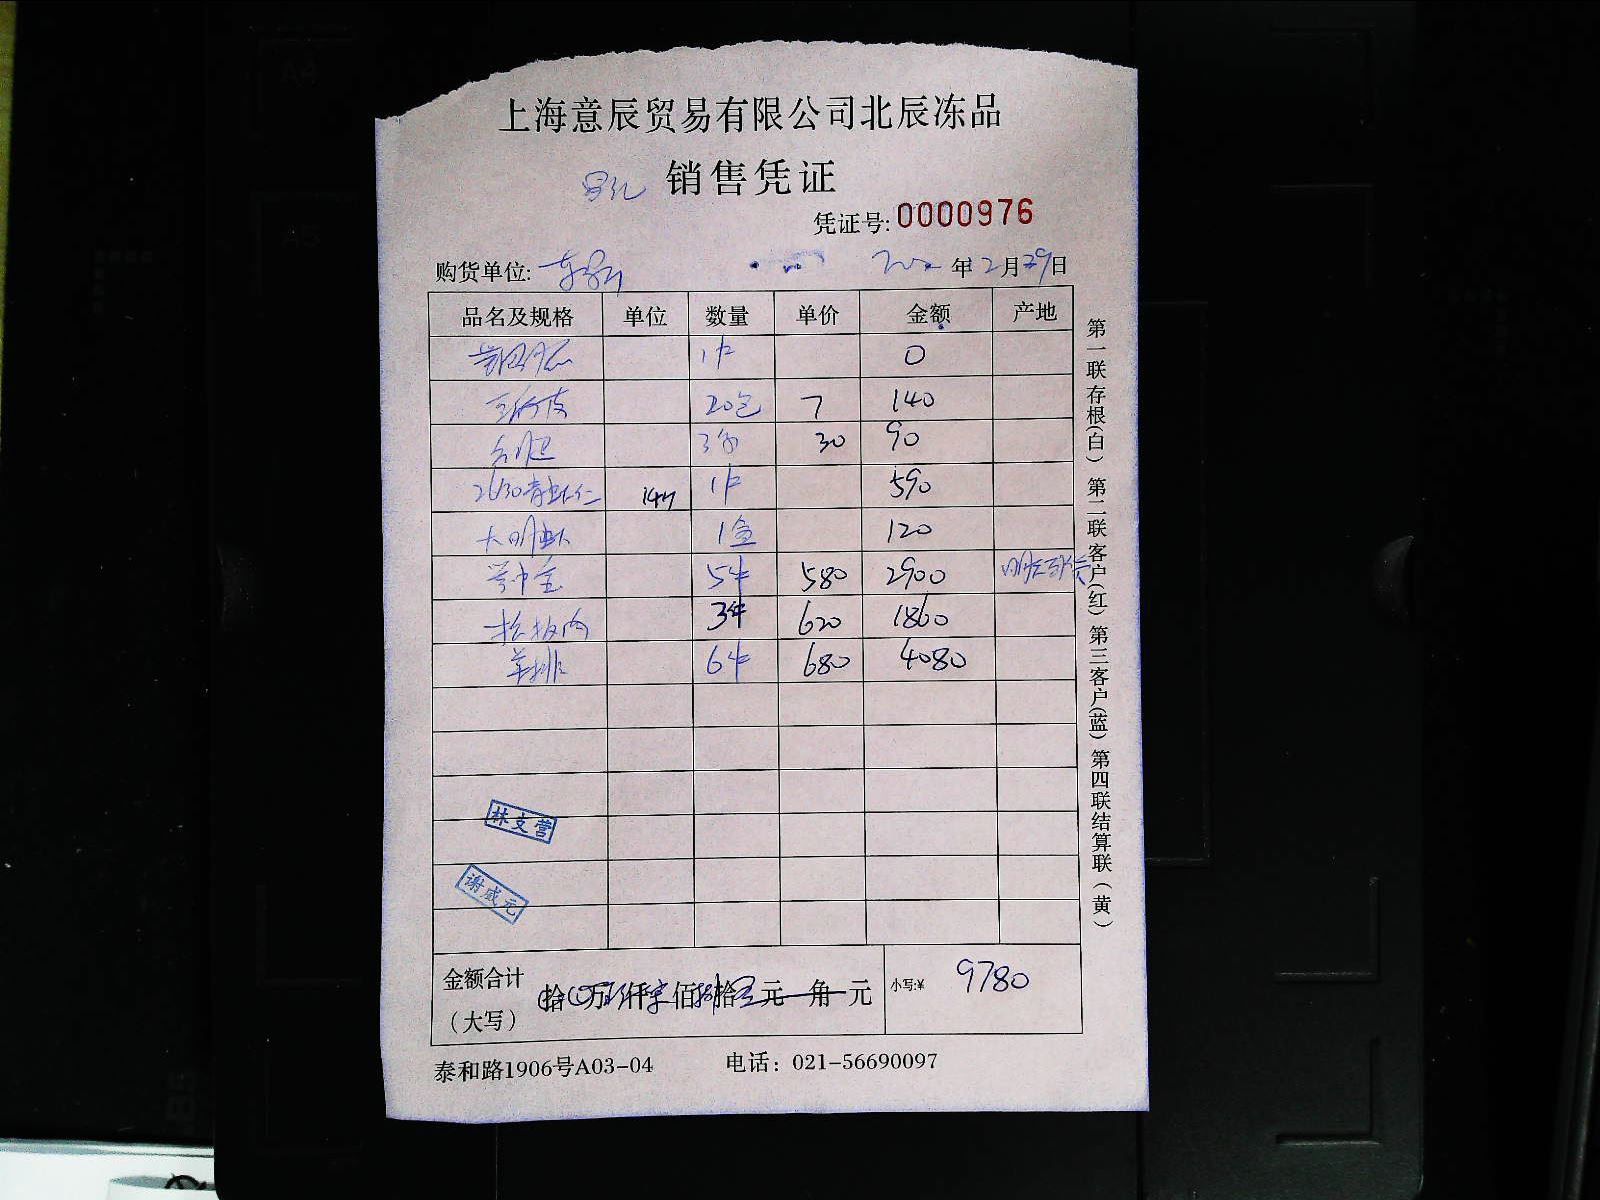 上海意辰贸易有限公司北辰冻品
销售凭证
凭证号:0000976
购货单位: 年2月29日
品名及规格 单位 数量 单价 金额 产地
1件 0
20包 7 140
3条 30 90
26/30青虾仁 1件 590
大明虾 1盒 120
5件 580 2900
松板肉 3件 620 1860
羊排 6件 680 4080
林支营
谢威元
金额合计
(大写) 拾 万 仟 佰 拾 元 角 元 小写:¥ 9780
泰和路1906号A03-04 电话：021-56690097
第一联存根(白) 第二联客户(红) 第三客户(蓝) 第四联结算联(黄)